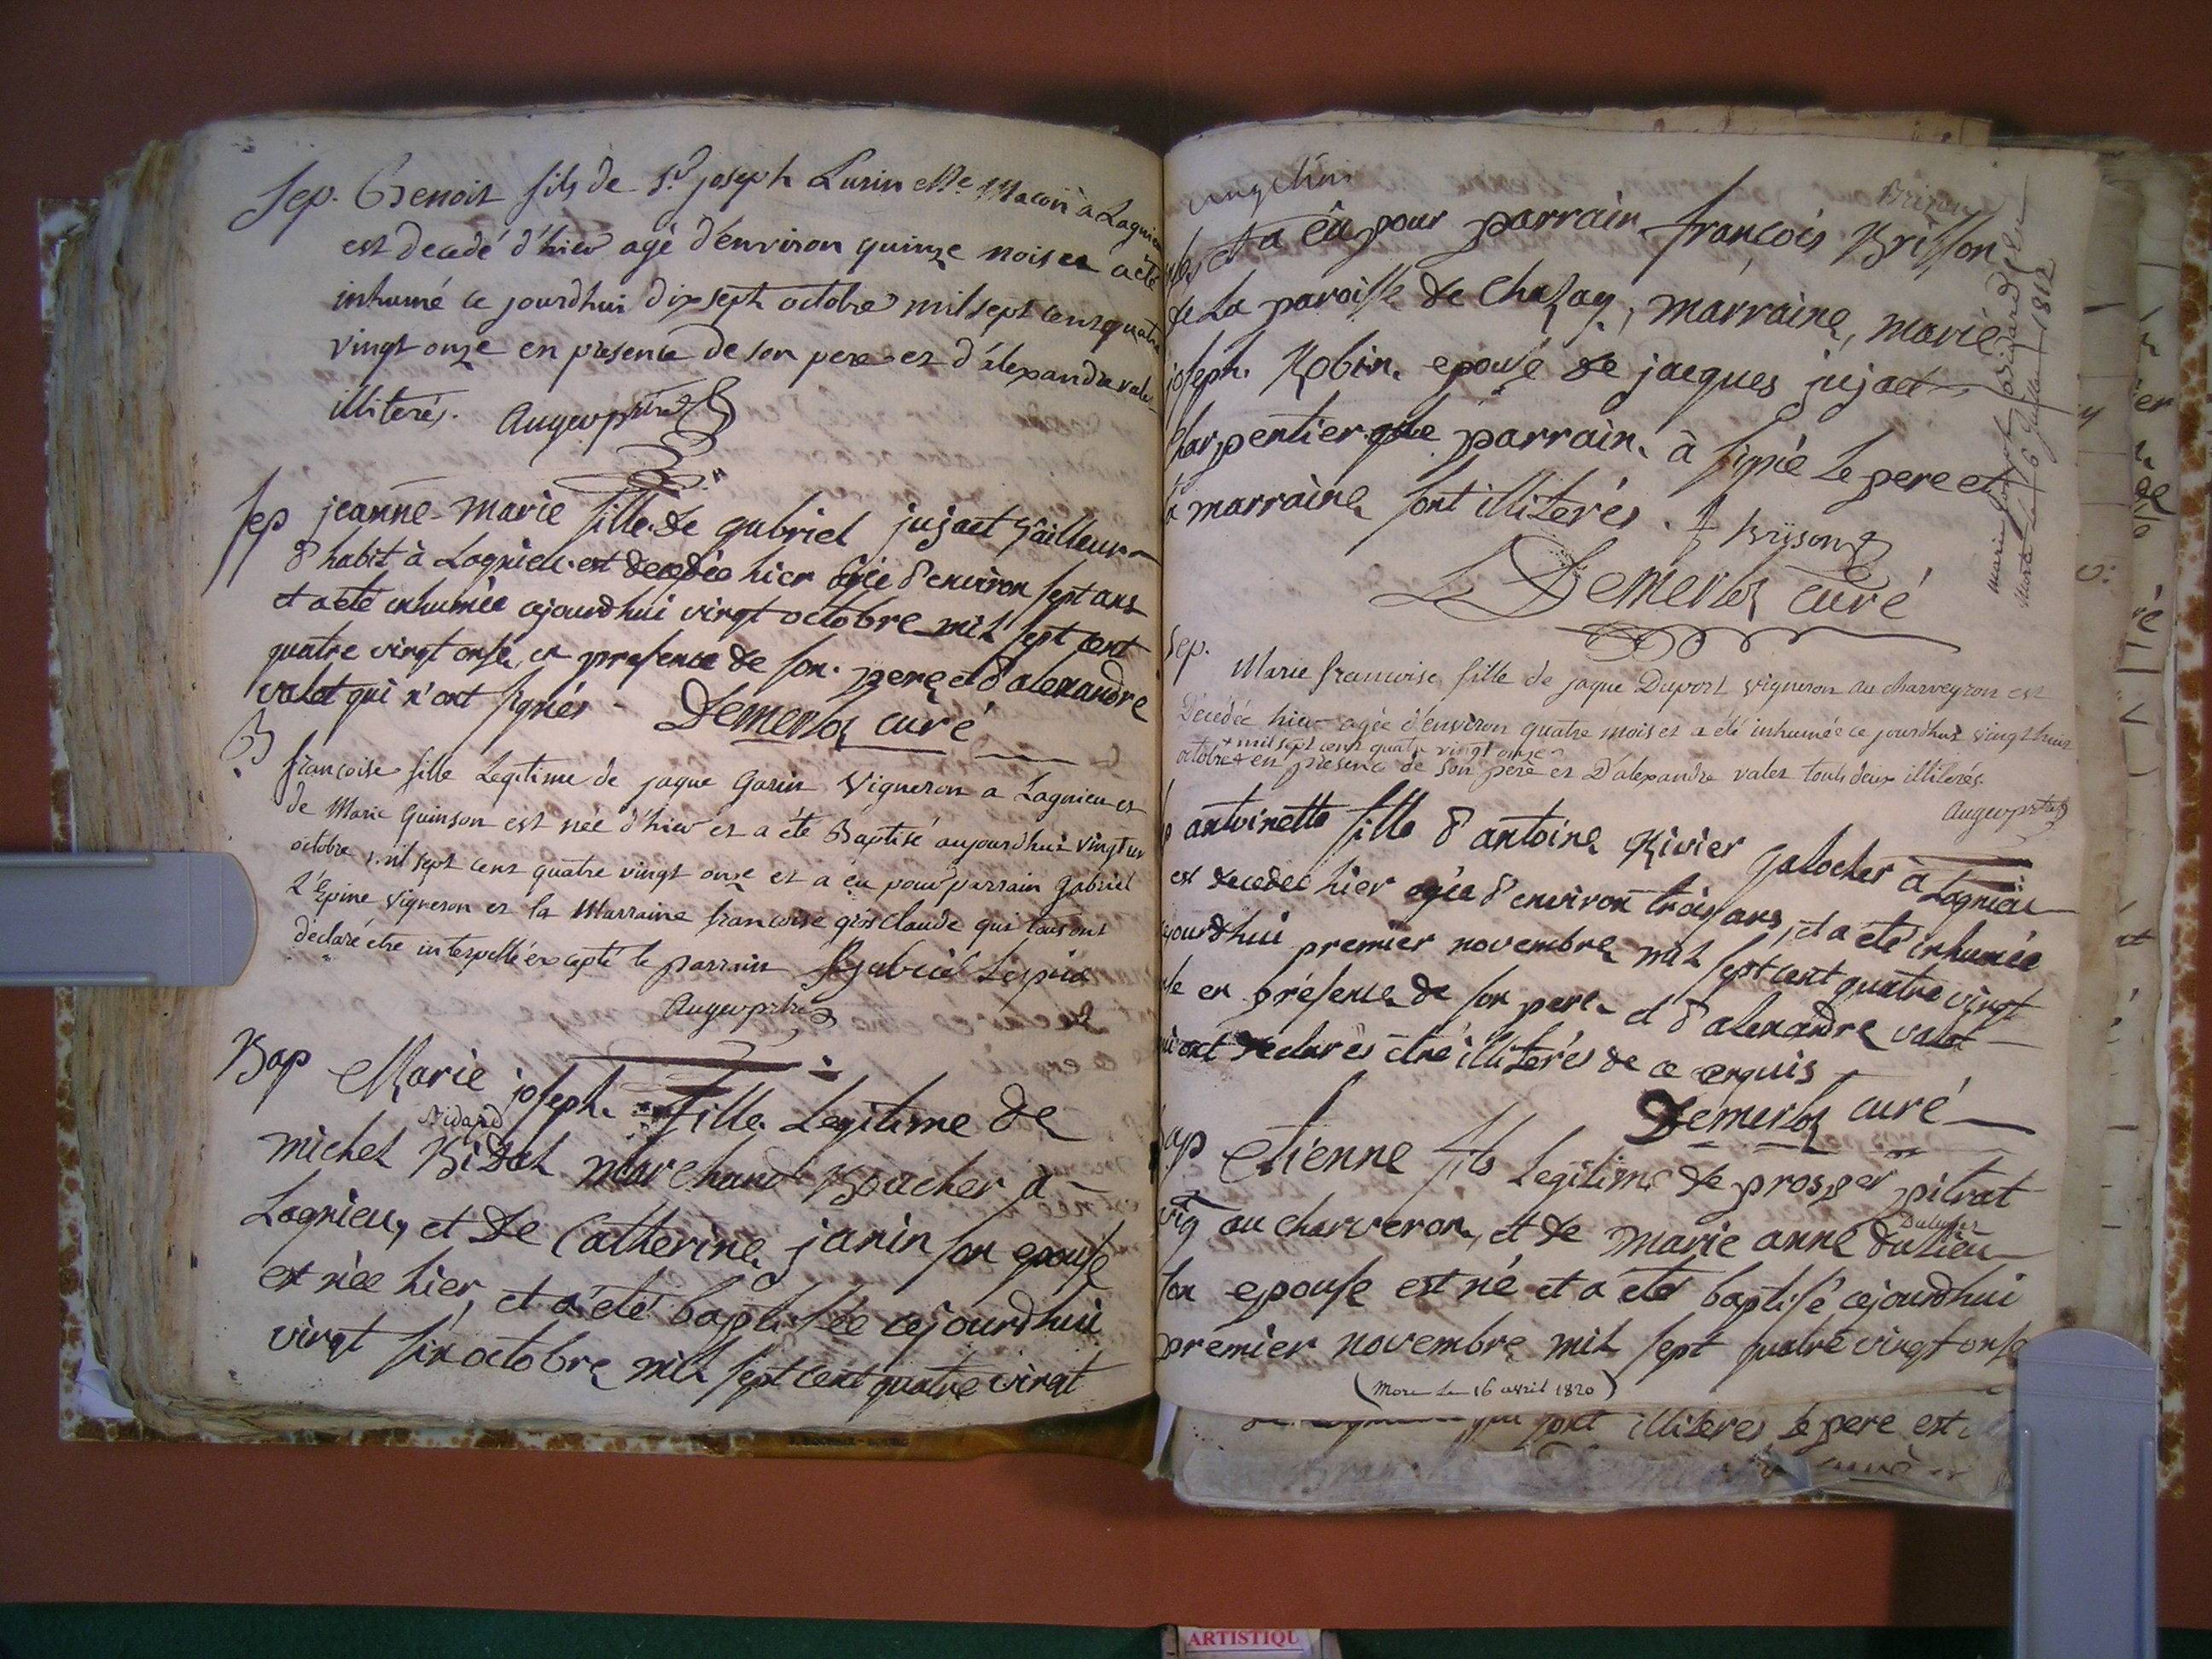 Sep. Benoit fils de Sr joseph Lurin Me Macon à Lagnieu
est decedé d'hier agé d'environ quinze mois et a été
inhumé ce jourdhui dix sept octobre mil sept cent quatre
vingt onze en presence de son pere et d'alexandre valet
illiterés. Auger ptre
Sep jeanne-marie fille de gabriel jujaet tailleur
d'habit à Lagnieu est decedée hier agée d'environ sept ans
et a été inhumée cejourdhui vingt octobre mil sept cent
quatre vingt onse, en presence de son pere et d'alexandre
valet qui n'ont signés Demerloz curé
B françoise fille Legitime de jaque Garin Vigneron a Lagnieu et
de Marie Guinson est née d'hier et a été Baptisé aujourdhui vingt un
octobre mil sept cent quatre vingt onze et a eu pour parrain gabriel
L'Epine vigneron et la Marraine francoise grosclaude qui tous ont
déclaré etre interpellé excepté le parrain Gabriel Lepine
Auger ptre
Bap Marie joseph fille Legitime de
Bidard
michel Bidal marchand Boucher à
Lagnieu, et de Catherine janin son epouse
est née hier, et a été baptisée cejourdhui
vingt six octobre mil sept cent quatre vingt
vingt huit
Brison
et a eu pour parrain françois Brisson
de La paroisse de Chazay, marraine, marie
joseph Robin epouse de jacques jujaet
charpentier que parrain à signé Le pere et
la marraine sont illiterés. f Brysons
Demerloz curé
marie joseph bidard
Morte le 6 juillet 1812
Sep.
Marie francoise fille de jaque Duport vigneron au charveyron est
Décédée hier agée d'environ quatre mois et a été inhumée ce jourdhui vingt huit
+ mil sept cent quatre vingt onze
octobre + en presence de son pere et D'alexandre valet touts deux illiterés.
Auger ptre
antoinette fille d'antoine Rivier galocher à Lagnieu
est decedée hier agée d'environ trois ans, et a été inhumée
cejourdhui premier novembre mil sept cent quatre vingt
onse en présence de son pere et d'alexandre valet
qui ont declarés etre illiterés de ce enquis
Demerloz curé
Bap etienne fils Legitime de prosper pitrat
Dulieux
vig au charveron, et de marie anne dulieu
son epouse est né et a été baptisé cejourdhui
premier novembre mil sept quatre vingt onse
(Mort le 16 avril 1820)
qui sont illiteres Le pere est
ARTISTIQU